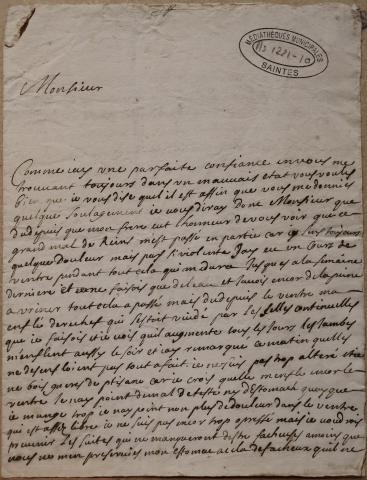 MEDIATHEQUES MUNICIPALES
Ms 1221-10
SAINTES
Monsieur
Comme iay une parfaite confiance en vous me
trouvant toujours dans un mauvais etat vous voulés
bien que ie vous dise quel il est affin que vous me donniés
quelque soulagement ie vous diray donc Monsieur que
dudepuis que mon frere eut l'honneur de vous voir que ce
grand mal de Reins m'est passé en partie car ie sens toujours
quelque douleur mais pas si violente Jay eu un Cours de
ventre pendant tout cela qui m'a duré Jusques a la semaine
derniere et ie ne faisois que de l'eau et j'avois encor de la peine
a uriner tout cela a passé mais du depuis le ventre ma
enflé derechef qui sestoit vuidé par les selles continuelles
que ie faisois et ie vois quil augmente tous les jours les Jambes
m'enflent aussy le soir et iay remarqué ce matin quelles
ne desenfloient pas tout afait ie ne suis pas trop alteré et ie
ne bois guere de ptisane car ie crois quelle m'enfle encor le
ventre Je nay point de mal de teste ny d'estomac quoyque
ie mange trop ie nay point non plus de douleur dans le ventre
qui est assés libre ie ne suis pas encor trop opressé mais ie voudrois
prevenir les suites qui ne manqueront destre facheuses amoins que
vous ne m'en preserviés mon estomac a cela de facheux quil ne